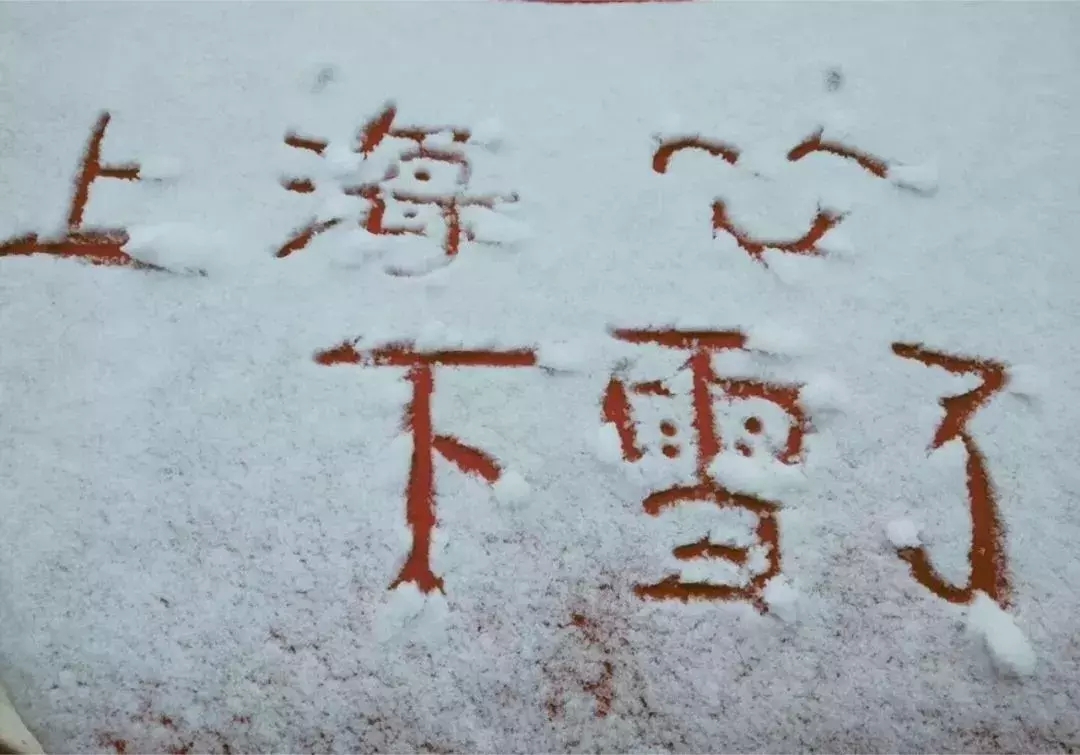 上海
下雪了